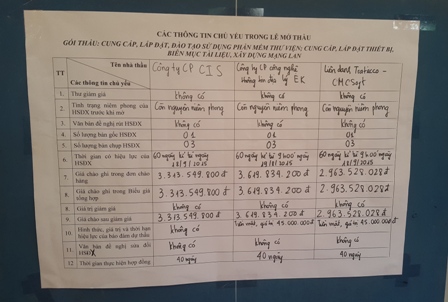 CÁC THÔNG TIN CHỦ YẾU TRONG LỄ MỞ THẦU
GÓI THẦU: CUNG CẤP, LẮP ĐẶT, ĐÀO TẠO SỬ DỤNG PHẦN MỀM THƯ VIỆN; CUNG CẤP, LẮP ĐẶT THIẾT BỊ,
BIÊN MỤC TÀI LIỆU, XÂY DỰNG MẠNG LAN
TT Tên nhà thầu Các thông tin chủ yếu Công ty CP CIS Công ty CP công nghệ EK Liên danh Tinhvan - CMCSoft
1. Thư giảm giá không có không có không có
2. Tình trạng niêm phong của HSDX trước khi mở Còn nguyên niêm phong Còn nguyên niêm phong Còn nguyên niêm phong
3. Văn bản đề nghị rút HSDX không có không có không có
4. Số lượng bản gốc HSDX 01 01 01
5. Số lượng bản chụp HSDX 03 03 03
6. Thời gian có hiệu lực của HSDX 60 ngày kể từ ngày 60 ngày kể từ 60 ngày kể từ
7. Giá chào ghi trong đơn chào hàng 3.313.549.800 đ 3.619.839.200 đ 2.963.528.028 đ
8. Giá chào ghi trong Biểu giá tổng hợp 3.313.549.800 đ 3.619.839.200 đ 2.963.528.028 đ
8. Giá trị giảm giá không có không có không có
9. Giá chào sau giảm giá 3.313.549.800 đ 3.619.839.200 đ 2.963.528.028 đ
10. Hình thức, giá trị và thời hạn hiệu lực của bảo đảm dự thầu không có 45.000.000đ 45.000.000đ
11. Văn bản đề nghị sửa đổi HSDX không có không có không có
12. Thời gian thực hiện hợp đồng 40 ngày 40 ngày 40 ngày